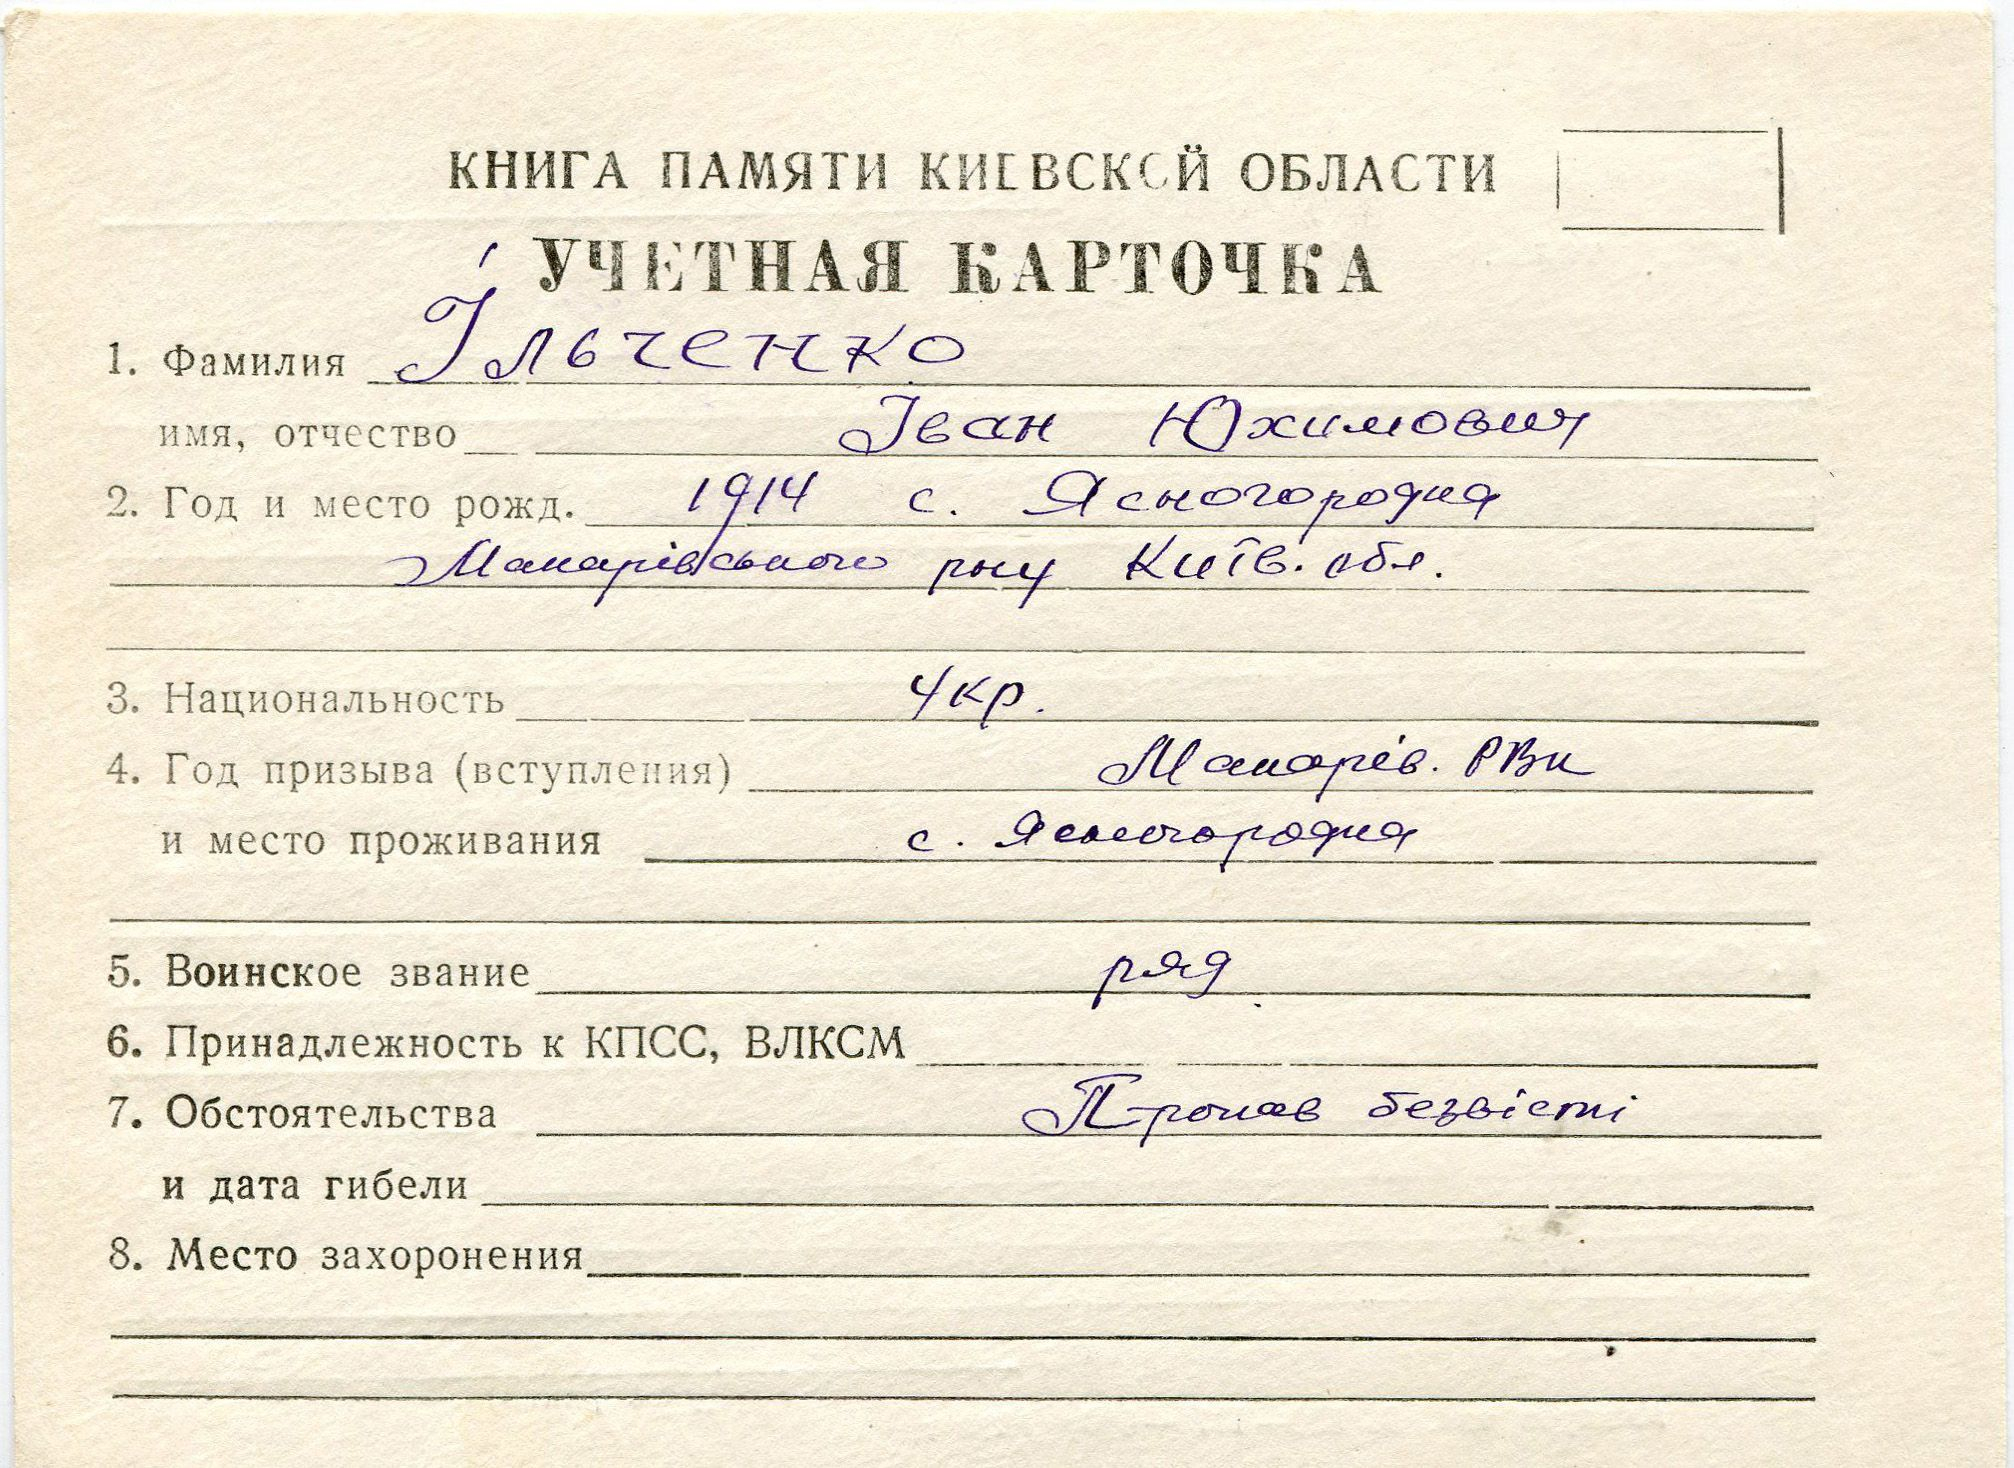 КНИГА ПАМЯТИ КИЕВСКОЙ ОБЛАСТИ
УЧЕТНАЯ КАРТОЧКА
1. Фамилия Ільченко
имя, отчество Іван Юхимович
2. Год и место рожд. 1914 с. Ясногородка
Макарівського р-ну Київ. обл.
3. Национальность Укр.
4. Год призыва (вступления) Макарів. РВК
и место проживания с. Ясногородка
5. Воинское звание ряд
6. Принадлежность к КПСС, ВЛКСМ
7. Обстоятельства Пропав безвісті
и дата гибели
8. Место захоронения